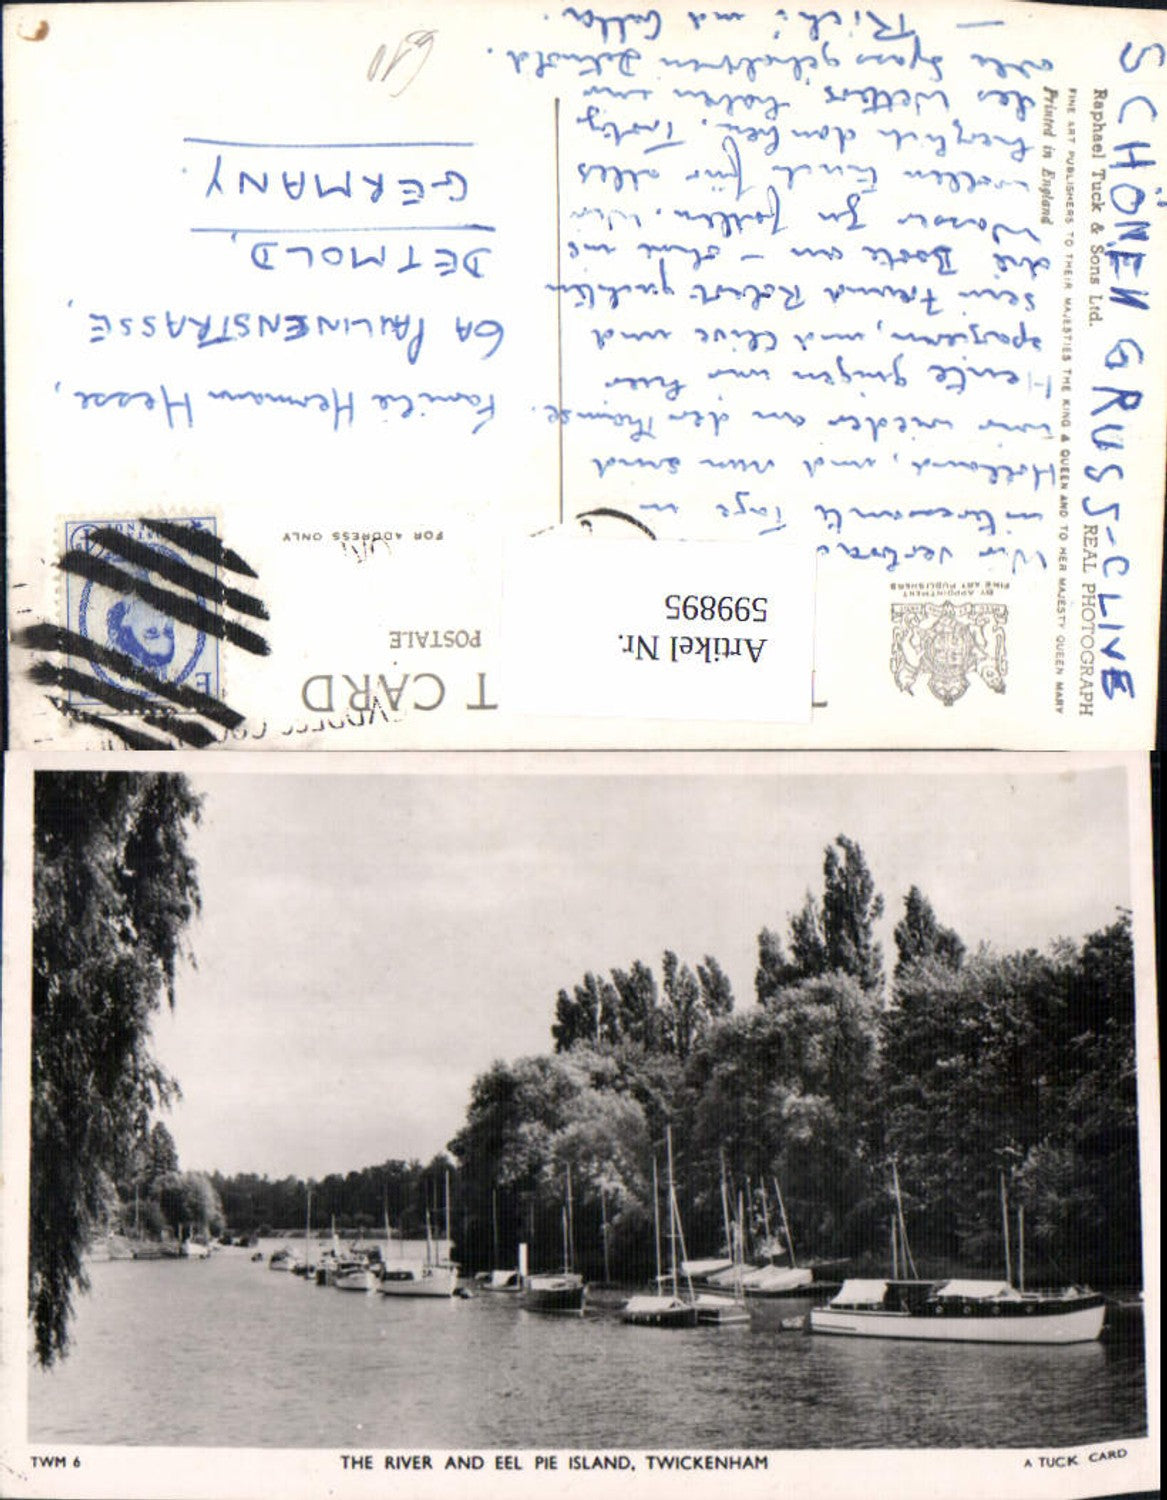 T CARD
POSTALE
FOR ADDRESS ONLY
BY APPOINTMENT
FINE ART PUBLISHERS
Artikel Nr.
599895
Wir
interessante Tage in
Holland, und nun sind
wir wieder an der Themse.
Heute gingen wir hier
spazieren, und Clive und
sein Freund Robert
die Boote an – ohne ins
Wasser zu fallen. Wir
wollen Euch für alles
herzlich danken. Trotz
des Wetters haben wir
alle Spass gehabt in Detmold.
– Richi und
SCHÖNEN GRUSS – CLIVE
Familie Hermann Hesse,
6A PAULINENSTRASSE,
DETMOLD,
GERMANY.
Raphael Tuck & Sons Ltd.
REAL PHOTOGRAPH
FINE ART PUBLISHERS TO THEIR MAJESTIES THE KING & QUEEN AND TO HER MAJESTY QUEEN MARY
Printed in England
TWM 6
THE RIVER AND EEL PIE ISLAND, TWICKENHAM
A TUCK CARD